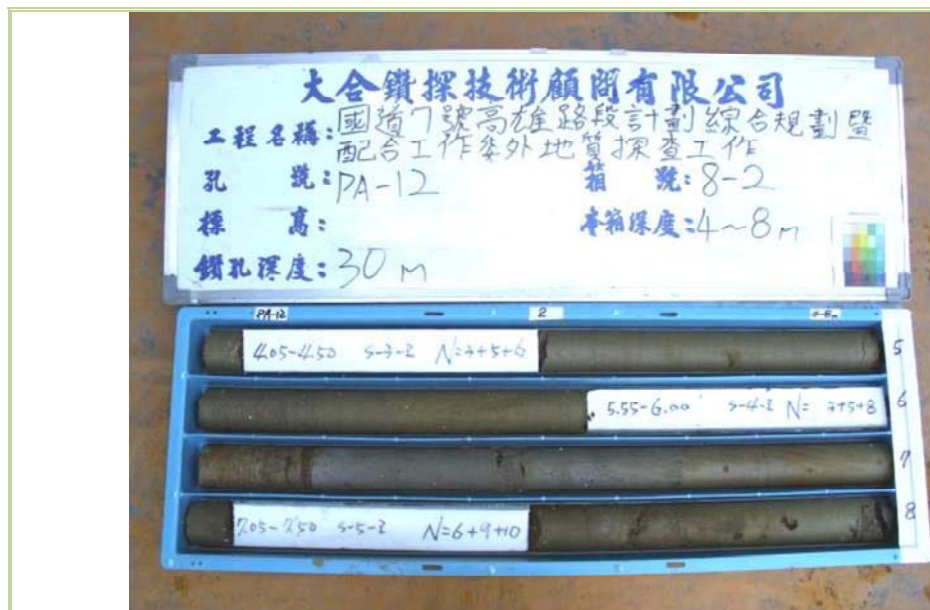 大合鑽探技術顧問有限公司
工程名稱:國道7號高雄路段計劃綜合規劃暨
配合工作委外地質探查工作
孔 號:PA-12 箱 號:8-2
標 高: 本箱深度:4~8m
鑽孔深度:30m
PA-12 2
4.05-4.50 N=3+5+6 5
5.55-6.00 N= 3+5+8 6
7
7.05-7.50 N=6+9+10 8